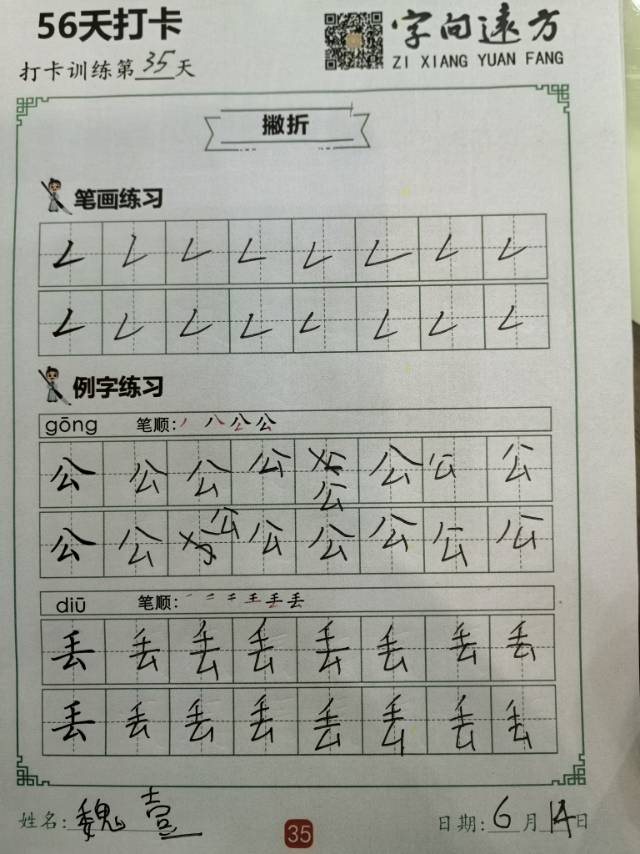 56天打卡
字向远方
ZI XIANG YUAN FANG
打卡训练第35天
撇折
笔画练习
例字练习
gōng 笔顺: 丿 八 公 公
公 公 公 公 公 公 公 公
公 公 公 公 公 公 公 公
diū 笔顺:
丢 丢 丢 丢 丢 丢 丢 丢
丢 丢 丢 丢 丢 丢 丢 丢
姓名: 魏壹
35
日期: 6月14日